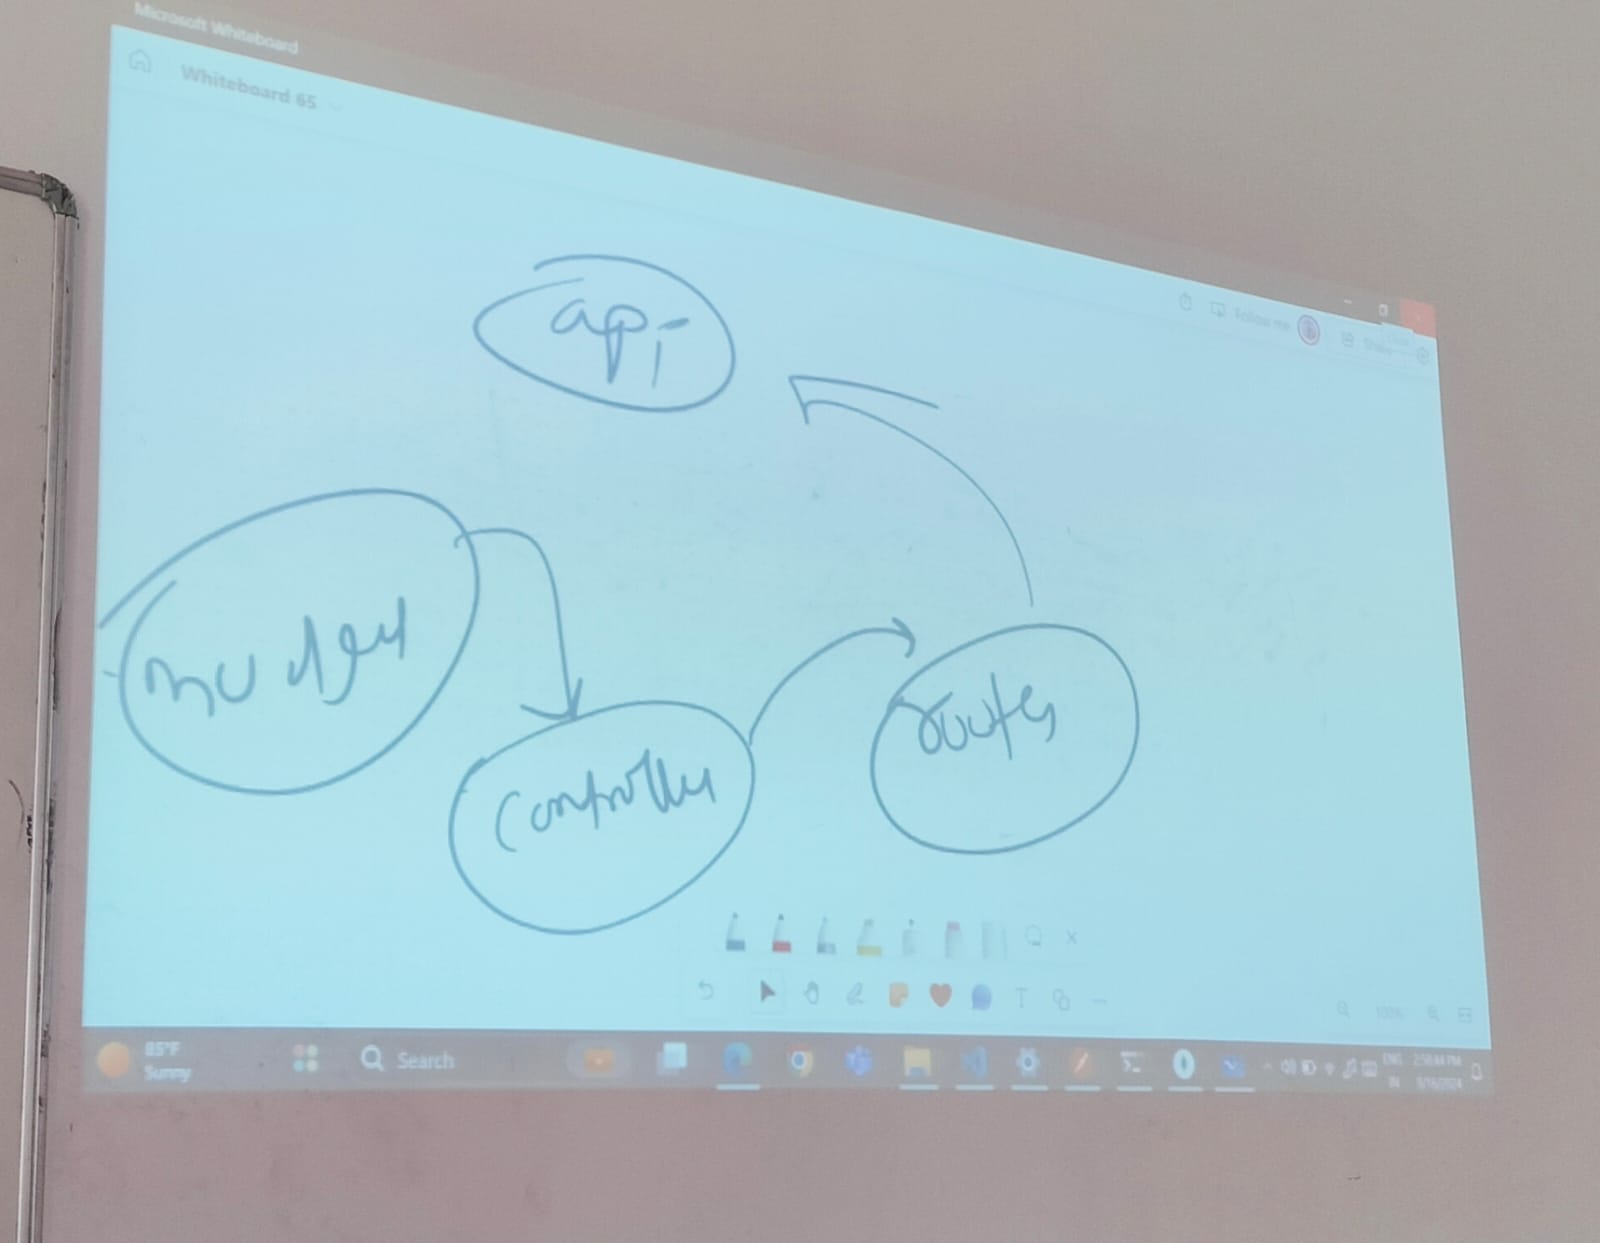 Microsoft Whiteboard
Whiteboard 65
Follow me
Share
api
model
controller
routes
100%
85°F
Sunny
Search
ENG
IN
2:58:44 PM
9/16/2024